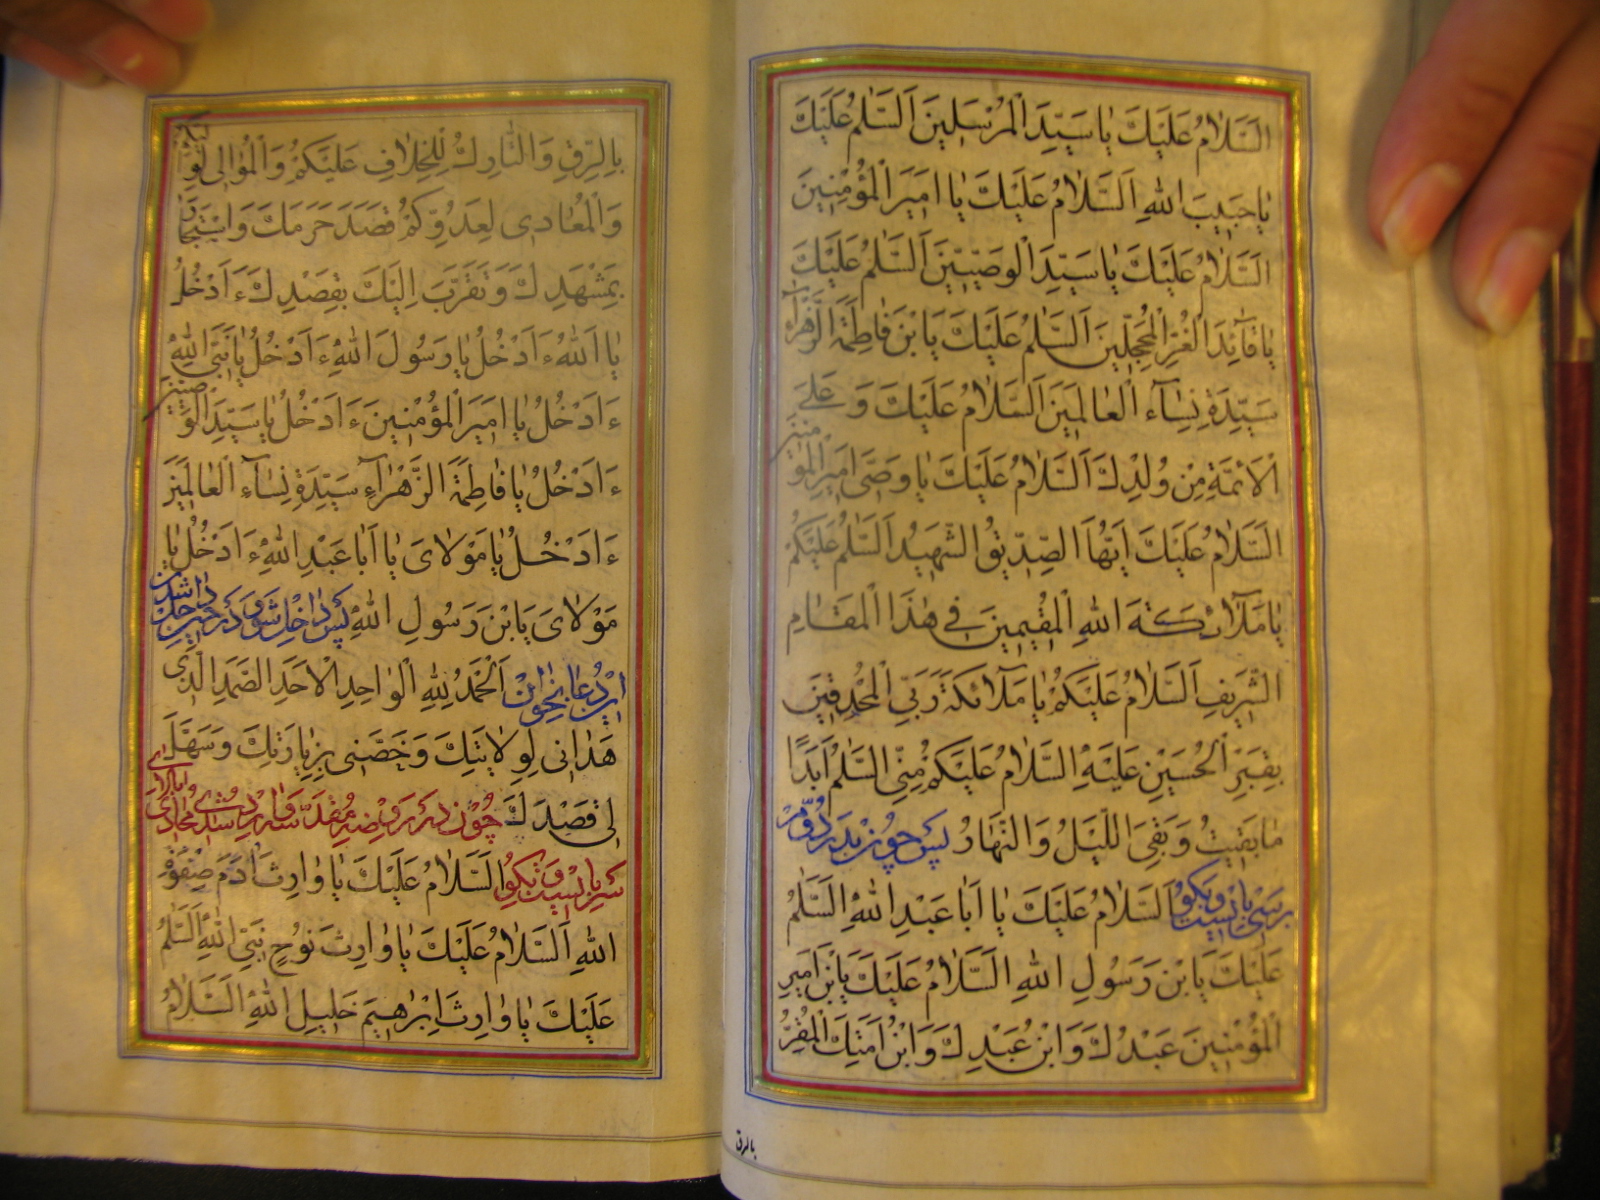 اَلسَّلامُ عَلَيْكَ يا سَيِّدَ الْمُرْسَلينَ اَلسَّلامُ عَلَيْكَ
يا حَبيبَ اللهِ اَلسَّلامُ عَلَيْكَ يا اَميرَ الْمُؤْمِنينَ
اَلسَّلامُ عَلَيْكَ يا سَيِّدَ الْوَصِيّينَ اَلسَّلامُ عَلَيْكَ
يا قآئِدَ الْغُرِّ الْمُحَجَّلينَ اَلسَّلامُ عَلَيْكَ يَا بْنَ فاطِمَةَ الزَّهْرآءِ
سَيِّدَةِ نِسآءِ الْعالَمينَ اَلسَّلامُ عَلَيْكَ وَ عَلَى
الْاَئِمَّةِ مِنْ وُلْدِكَ اَلسَّلامُ عَلَيْكَ يا وَصِيَّ اَميرِ الْمُؤْمِنينَ
اَلسَّلامُ عَلَيْكَ اَيُّهَا الصِّدّيقُ الشَّهيدُ اَلسَّلامُ عَلَيْكُمْ
يا مَلآئِكَةَ اللهِ الْمُقيمينَ في هٰذَا الْمَقامِ
الشَّريفِ اَلسَّلامُ عَلَيْكُمْ يا مَلآئِكَةَ رَبّي الْمُحْدِقينَ
بِقَبْرِ الْحُسَيْنِ عَلَيْهِ السَّلامُ عَلَيْكُمْ مِنِّي السَّلامُ اَبَدًا
ما بَقيتُ وَ بَقِيَ اللَّيْلُ وَ النَّهارُ پس چون بدر دوم
برسی بایست و بگو اَلسَّلامُ عَلَيْكَ يا اَبا عَبْدِ اللهِ اَلسَّلامُ
عَلَيْكَ يَا بْنَ رَسُولِ اللهِ اَلسَّلامُ عَلَيْكَ يَا بْنَ اَميرِ
الْمُؤْمِنينَ عَبْدُكَ وَ ابْنُ عَبْدِكَ وَ ابْنُ اَمَتِكَ الْمُقِرُّ
بالرق
بِالرِّقِّ وَ التّارِكُ لِلْخِلافِ عَلَيْكُمْ وَ الْمُوالي لِوَلِيِّكُمْ
وَ الْمُعادي لِعَدُوِّكُمْ قَصَدَ حَرَمَكَ وَ اسْتَجارَ
بِمَشْهَدِكَ وَ تَقَرَّبَ اِلَيْكَ بِقَصْدِكَ ءَاَدْخُلُ
يا اَللهُ ءَاَدْخُلُ يا رَسُولَ اللهِ ءَاَدْخُلُ يا نَبِيَّ اللهِ
ءَاَدْخُلُ يا اَميرَ الْمُؤْمِنينَ ءَاَدْخُلُ يا سَيِّدَ الْوَصِيّينَ
ءَاَدْخُلُ يا فاطِمَةَ الزَّهْرآءِ سَيِّدَةِ نِسآءِ الْعالَمينَ
ءَاَدْخُلُ يا مَوْلايَ يا اَبا عَبْدِ اللهِ ءَاَدْخُلُ يا
مَوْلايَ يَا بْنَ رَسُولِ اللهِ پس داخل شوی در
این دعا بخوان اَلْحَمْدُ لِلهِ الْواحِدِ الْاَحَدِ الصَّمَدِ الَّذي
هَداني لِوِلايَتِكَ وَ خَصَّني بِزِيارَتِكَ وَ سَهَّلَ
لي قَصْدَكَ چون در برابر ضریح مقدس
سر بایست و بگو اَلسَّلامُ عَلَيْكَ يا وارِثَ آدَمَ صِفْوَةِ
اللهِ اَلسَّلامُ عَلَيْكَ يا وارِثَ نُوحٍ نَبِيِّ اللهِ اَلسَّلامُ
عَلَيْكَ يا وارِثَ اِبْرٰهيمَ خَليلِ اللهِ اَلسَّلامُ